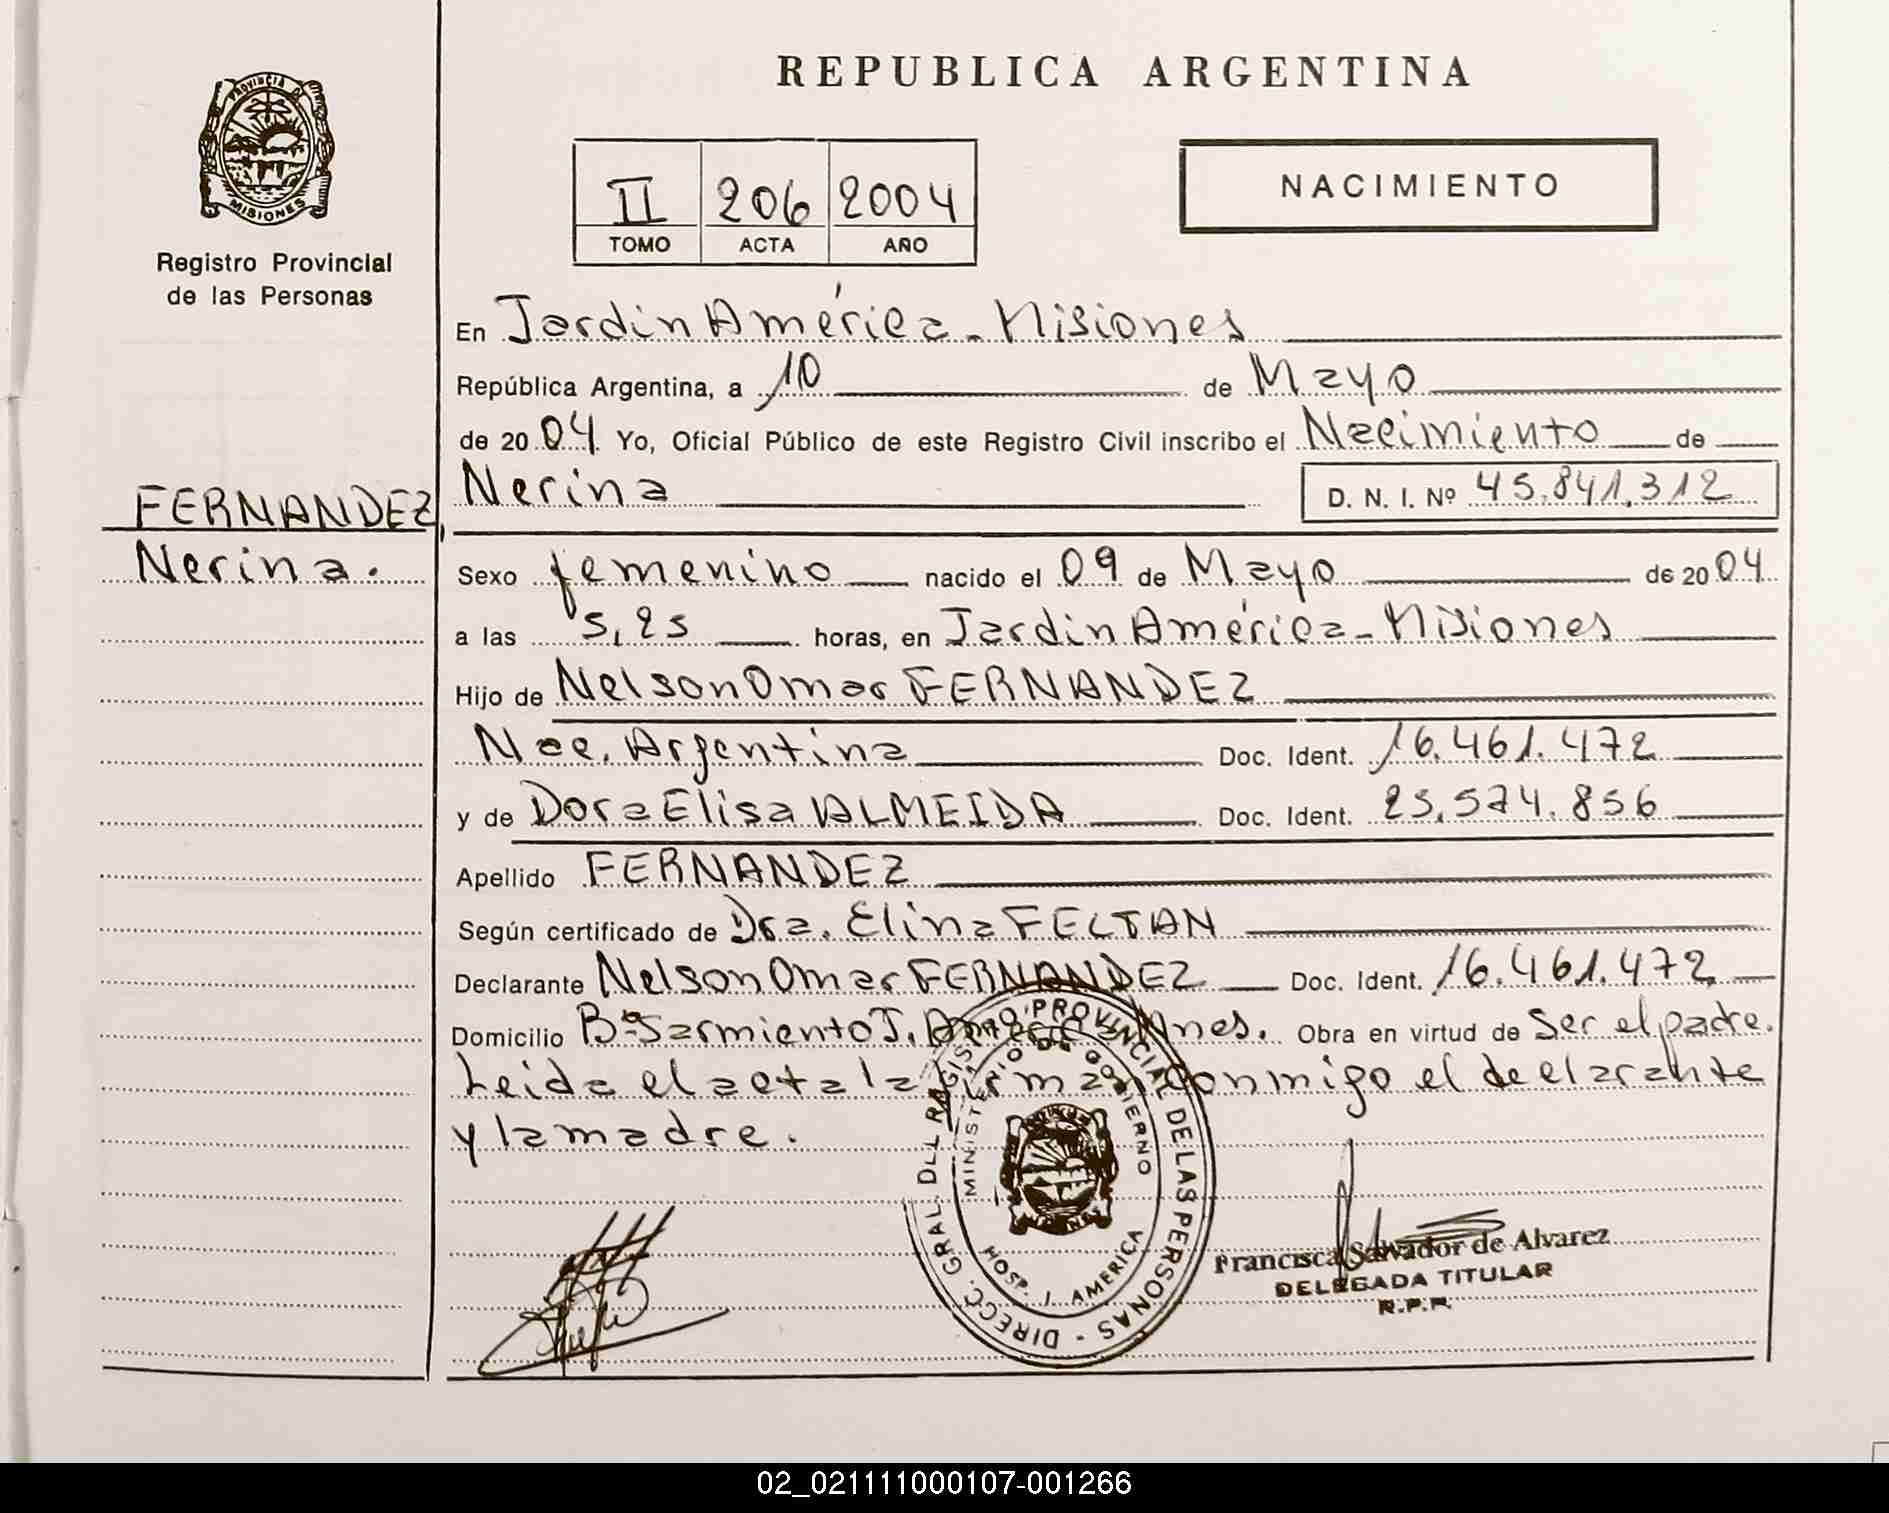 REPUBLICA ARGENTINA
PROVINCIA DE
MISIONES
Registro Provincial
de las Personas
II 206 2004
TOMO ACTA AÑO
NACIMIENTO
En Jardin América - Misiones
República Argentina, a 10 de Mayo
de 2004 Yo, Oficial Público de este Registro Civil inscribo el Nacimiento de
Nerina D. N. I. Nº 45.841.312
FERNANDEZ
Nerina.
Sexo femenino nacido el 09 de Mayo de 2004
a las 5,25 horas, en Jardin América - Misiones
Hijo de Nelson Omar FERNANDEZ
Nac. Argentina Doc. Ident. 16.461.472
y de Dora Elisa ALMEIDA Doc. Ident. 25.574.856
Apellido FERNANDEZ
Según certificado de Dra. Elina FELTAN
Declarante Nelson Omar FERNANDEZ Doc. Ident. 16.461.472
Domicilio Bº Sarmiento J. América Mnes. Obra en virtud de Ser el padre.
Leida el acta la firman conmigo el declarante
y la madre.
DIRECC. GRAL. DEL REGISTRO PROVINCIAL DE LAS PERSONAS -
MINISTERIO DE GOBIERNO
HOSP. J. AMERICA
MISIONES
Francisca Salvador de Alvarez
DELEGADA TITULAR
R.P.P.
02_021111000107-001266